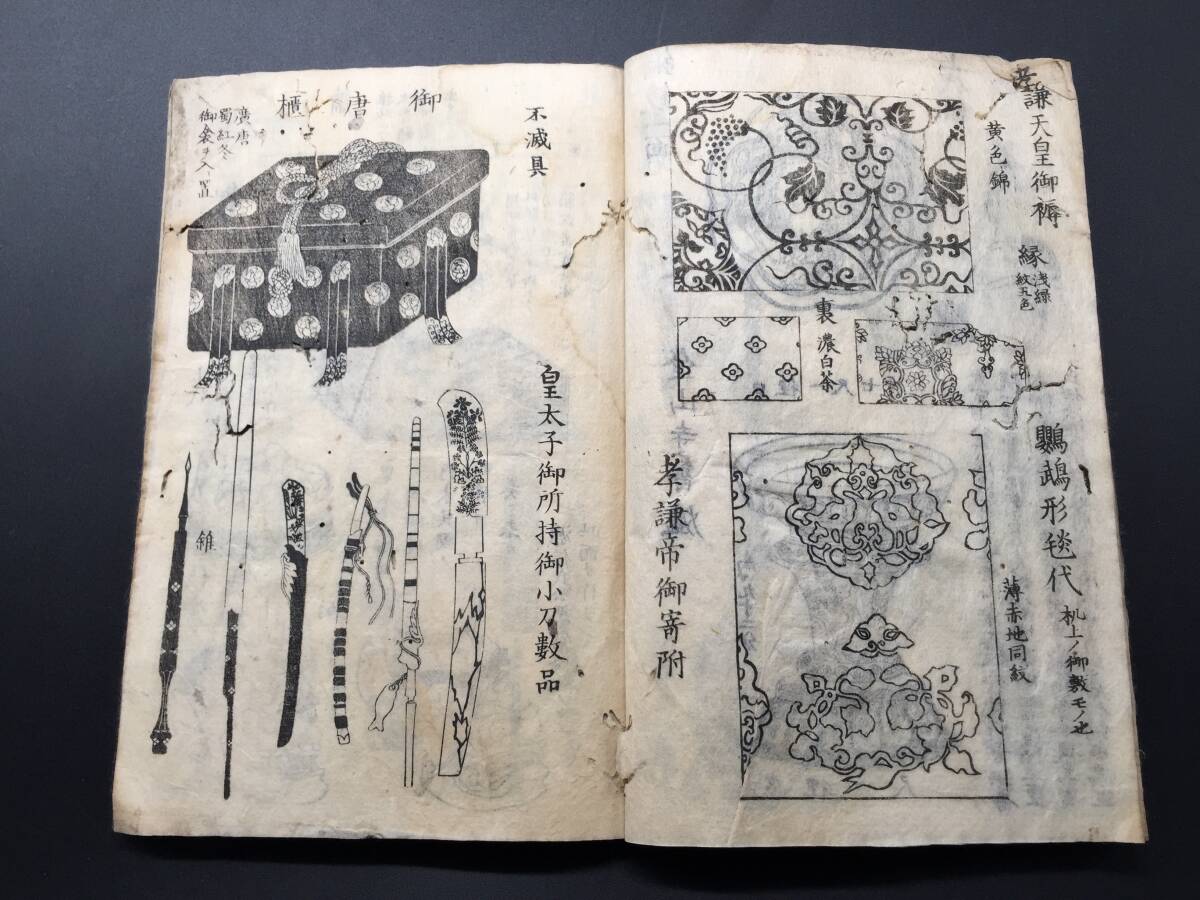 孝謙天皇御褥
黄色錦
縁
浅緑
紋五色
裏
濃白茶
鸚鵡形毯代
机上ノ御敷モノ也
薄赤地同紋
孝謙帝御寄附
不滅具
御唐櫃
廣唐
蜀紅冬
御衾ヲ入置
皇太子御所持御小刀數品
錐